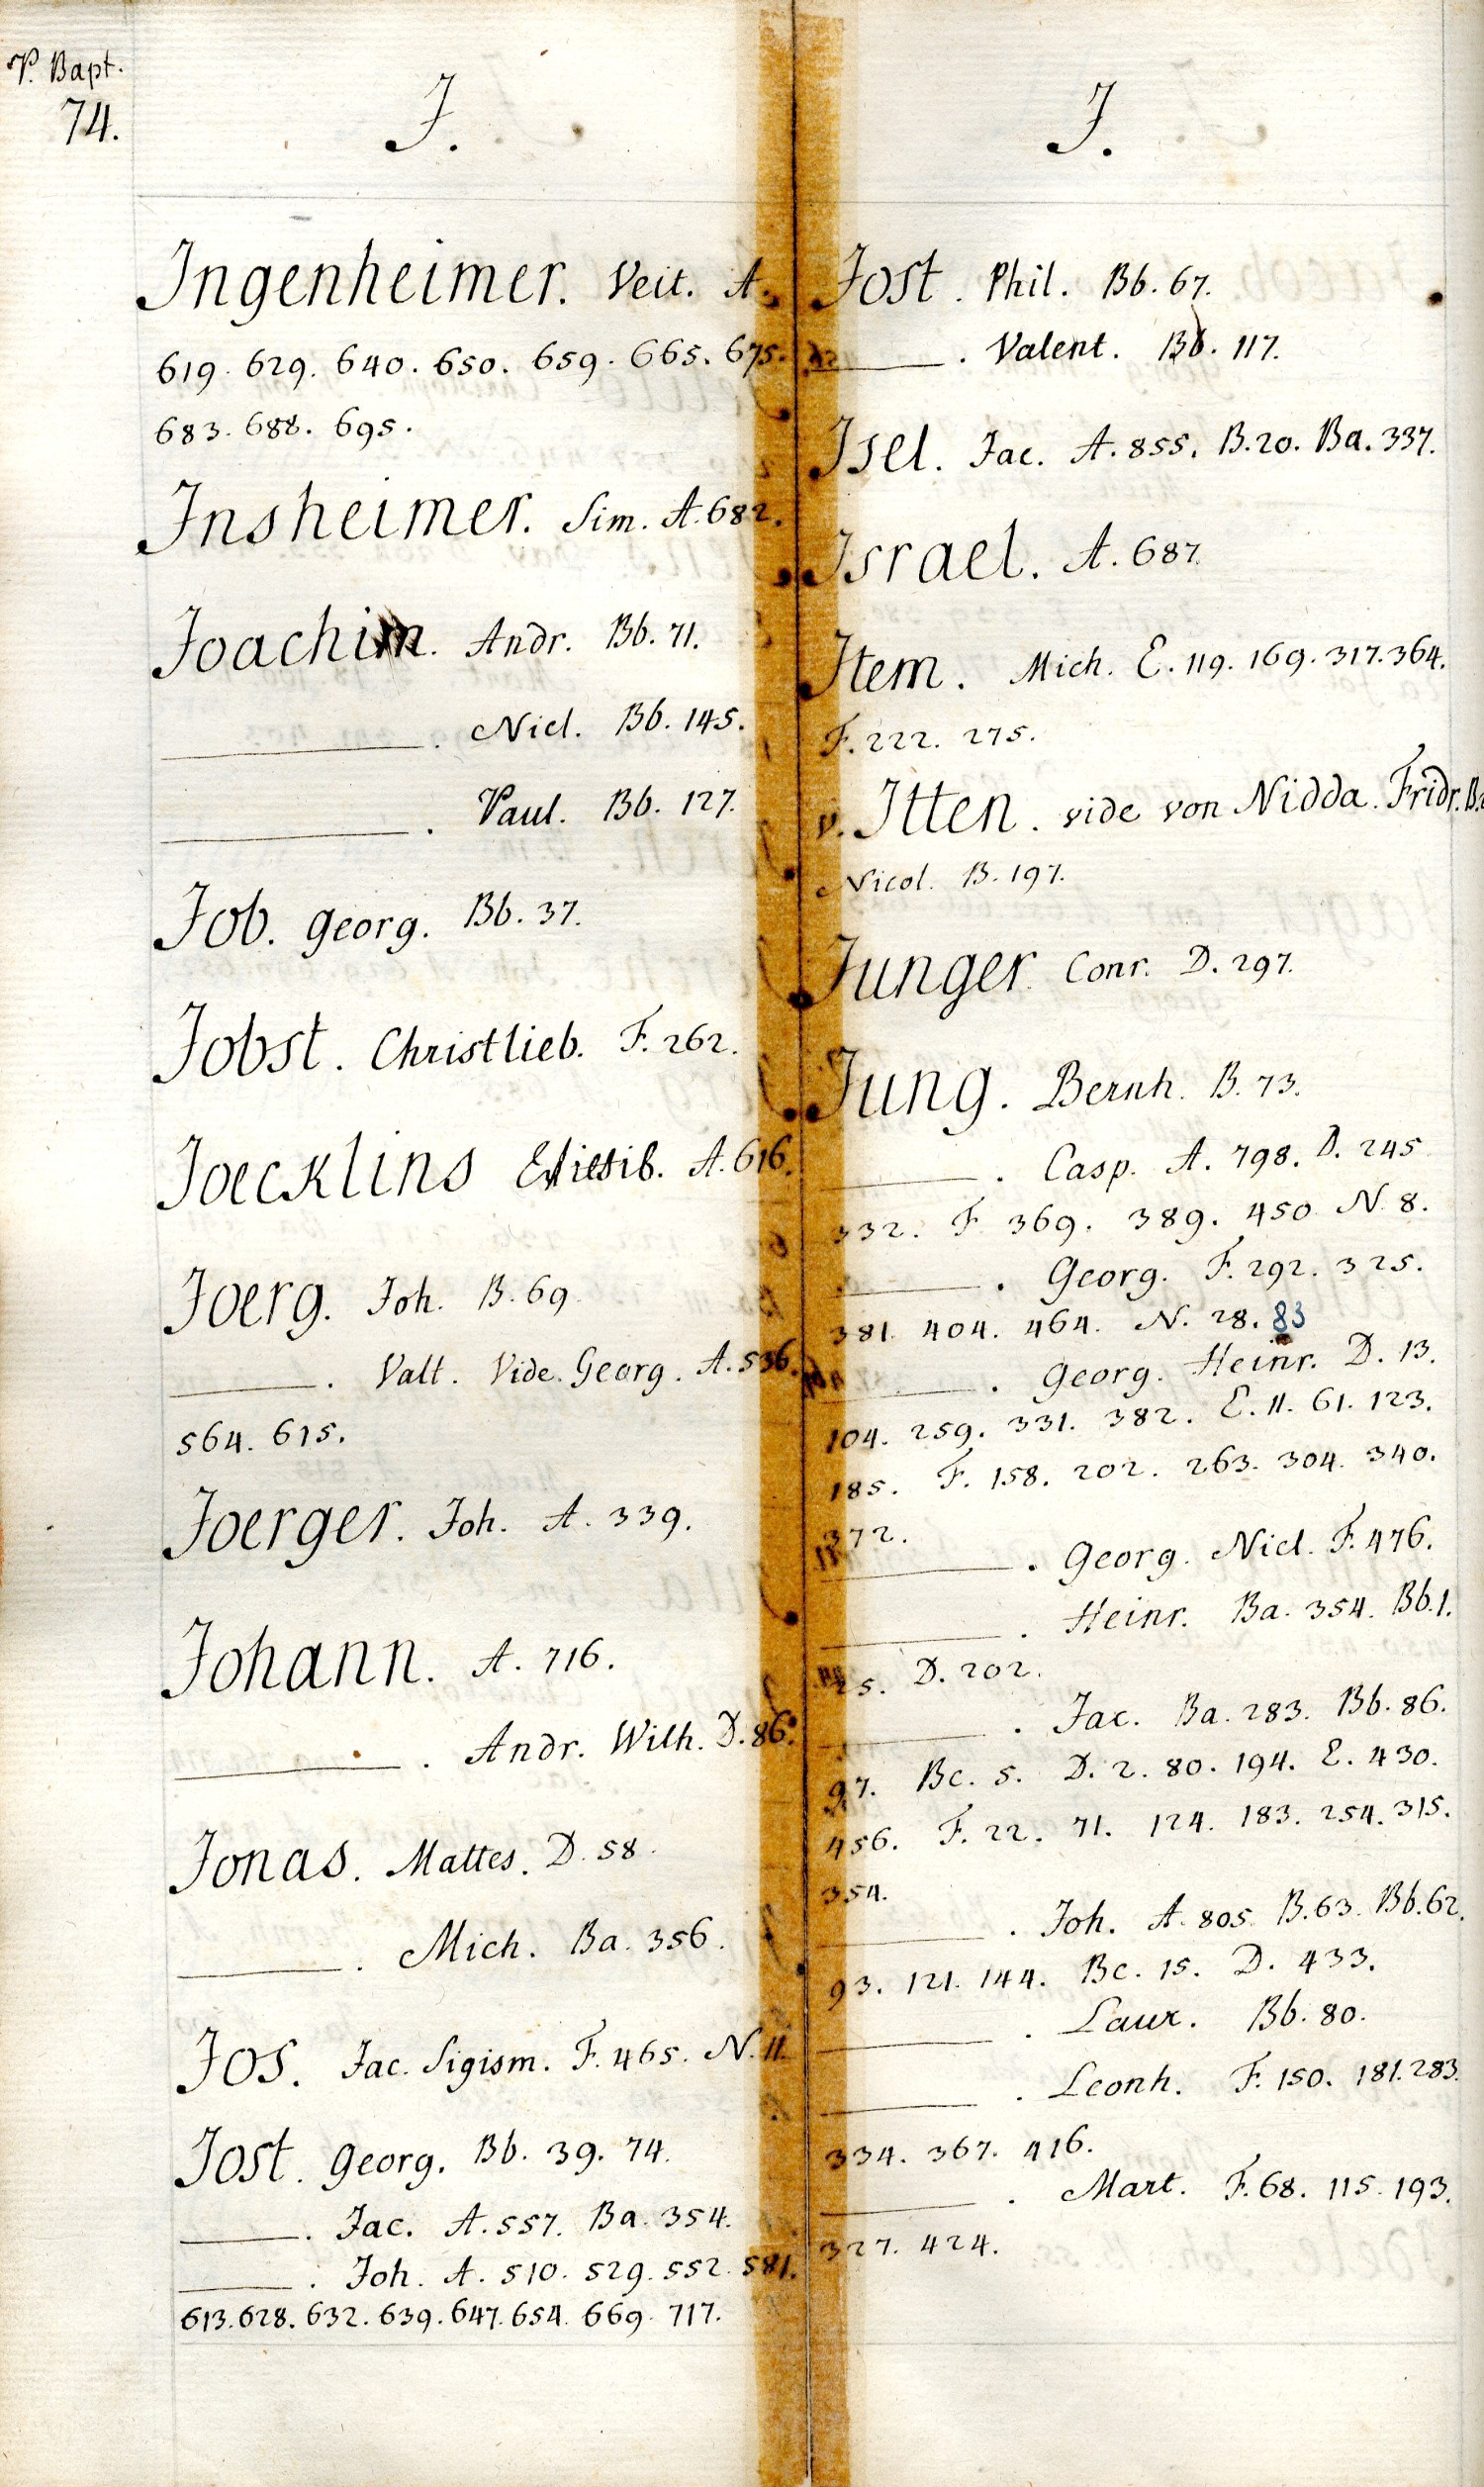 P. Bapt.
74.
J.
Ingenheimer. Veit. A.
619. 629. 640. 650. 659. 665. 675.
683. 688. 695.
Insheimer. Sim. A. 682.
Joachim. Andr. Bb. 71.
———. Nicl. Bb. 145.
———. Paul. Bb. 127.
Job. Georg. Bb. 37.
Jobst. Christlieb. F. 262.
Joecklins A. 616.
Joerg. Joh. B. 69
———. Valt. Vide. Georg. A. 536.
564. 615.
Joerger. Joh. A. 339.
Johann. A. 716.
———. Andr. Wilh. D. 86.
Jonas. Mattes. D. 58.
———. Mich. Ba. 356.
Jos. Jac. Sigism. F. 465. N. 11.
Jost. Georg. Bb. 39. 74.
———. Jac. A. 557. Ba. 354.
———. Joh. A. 510. 529. 552. 581.
613. 628. 632. 639. 647. 654. 669. 717.
J.
Jost. Phil. Bb. 67.
———. Valent. Bb. 117.
Isel. Jac. A. 855. B. 20. Ba. 337.
Israel. A. 687.
Item. Mich. E. 119. 169. 317. 364.
F. 222. 275.
v. Itten. vide von Nidda. Fridr.
Nicol. B. 197.
Junger. Conr. D. 297.
Jung. Bernh. B. 73.
———. Casp. A. 798. D. 245
332. F. 369. 389. 450. N. 8.
———. Georg. F. 292. 325.
381. 404. 464. N. 28. 83
———. Georg. Heinr. D. 13.
104. 259. 331. 382. E. 11. 61. 123.
185. F. 158. 202. 263. 304. 340.
372.
———. Georg. Nicl. F. 476.
———. Heinr. Ba. 354. Bb. 1.
25. D. 202.
———. Jac. Ba. 283. Bb. 86.
97. Bc. 5. D. 2. 80. 194. E. 430.
456. F. 22. 71. 124. 183. 254. 315.
354.
———. Joh. A. 805. B. 63. Bb. 62.
93. 121. 144. Bc. 15. D. 433.
———. Laur. Bb. 80.
———. Leonh. F. 150. 181. 283.
334. 367. 416.
———. Mart. F. 68. 115. 193.
327. 424.